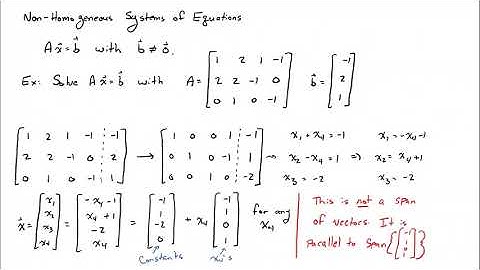 Non-Homogeneous Systems of Equations
A x⃗ = b⃗ with b⃗ ≠ 0⃗.
Ex: Solve A x⃗ = b⃗ with A = [1 2 1 -1; 2 2 -1 0; 0 1 0 -1] b⃗ = [-1; 2; 1]
[1 2 1 -1 -1; 2 2 -1 0 2; 0 1 0 -1 1] → [1 0 0 1 -1; 0 1 0 -1 1; 0 0 1 0 -2]
x₁ + x₄ = -1 x₁ = -x₄ -1
x₂ - x₄ = 1 ⇒ x₂ = x₄ + 1
x₃ = -2 x₃ = -2
x⃗ = [x₁; x₂; x₃; x₄] = [-x₄ -1; x₄ +1; -2; x₄] = [-1; 1; -2; 0] + x₄ [-1; 1; 0; 1] for any x₄
constants x₄'s
This is not a span
of vectors. It is
parallel to span{[-1; 1; 0; 1]}